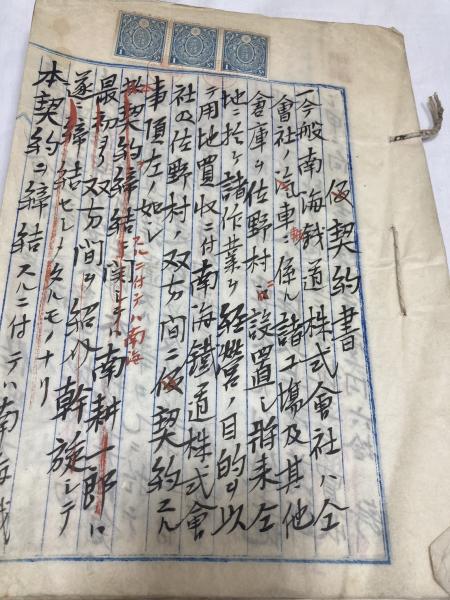 仮契約書
一今般南海鉄道株式會社ハ仝
會社ノ汽車ニ係ル諸工塲及其他
倉庫ヲ佐野村ニ設置シ将来仝
地ニ於ケル諸作業ヲ經營ノ目的ヲ以
テ用地買収ニ付南海鐵道株式會
社ト佐野村ノ双方間ニ仮契約スル
事項左ノ如シ
契約締結ニ関シテハ南耕一郎ハ
スルニ付テハ南海
最初ヨリ双方間ヲ紹介幹旋シテ
遂ニ締結セシメタルモノナリ
本契約ヲ締結スルニ付テハ南海鉄